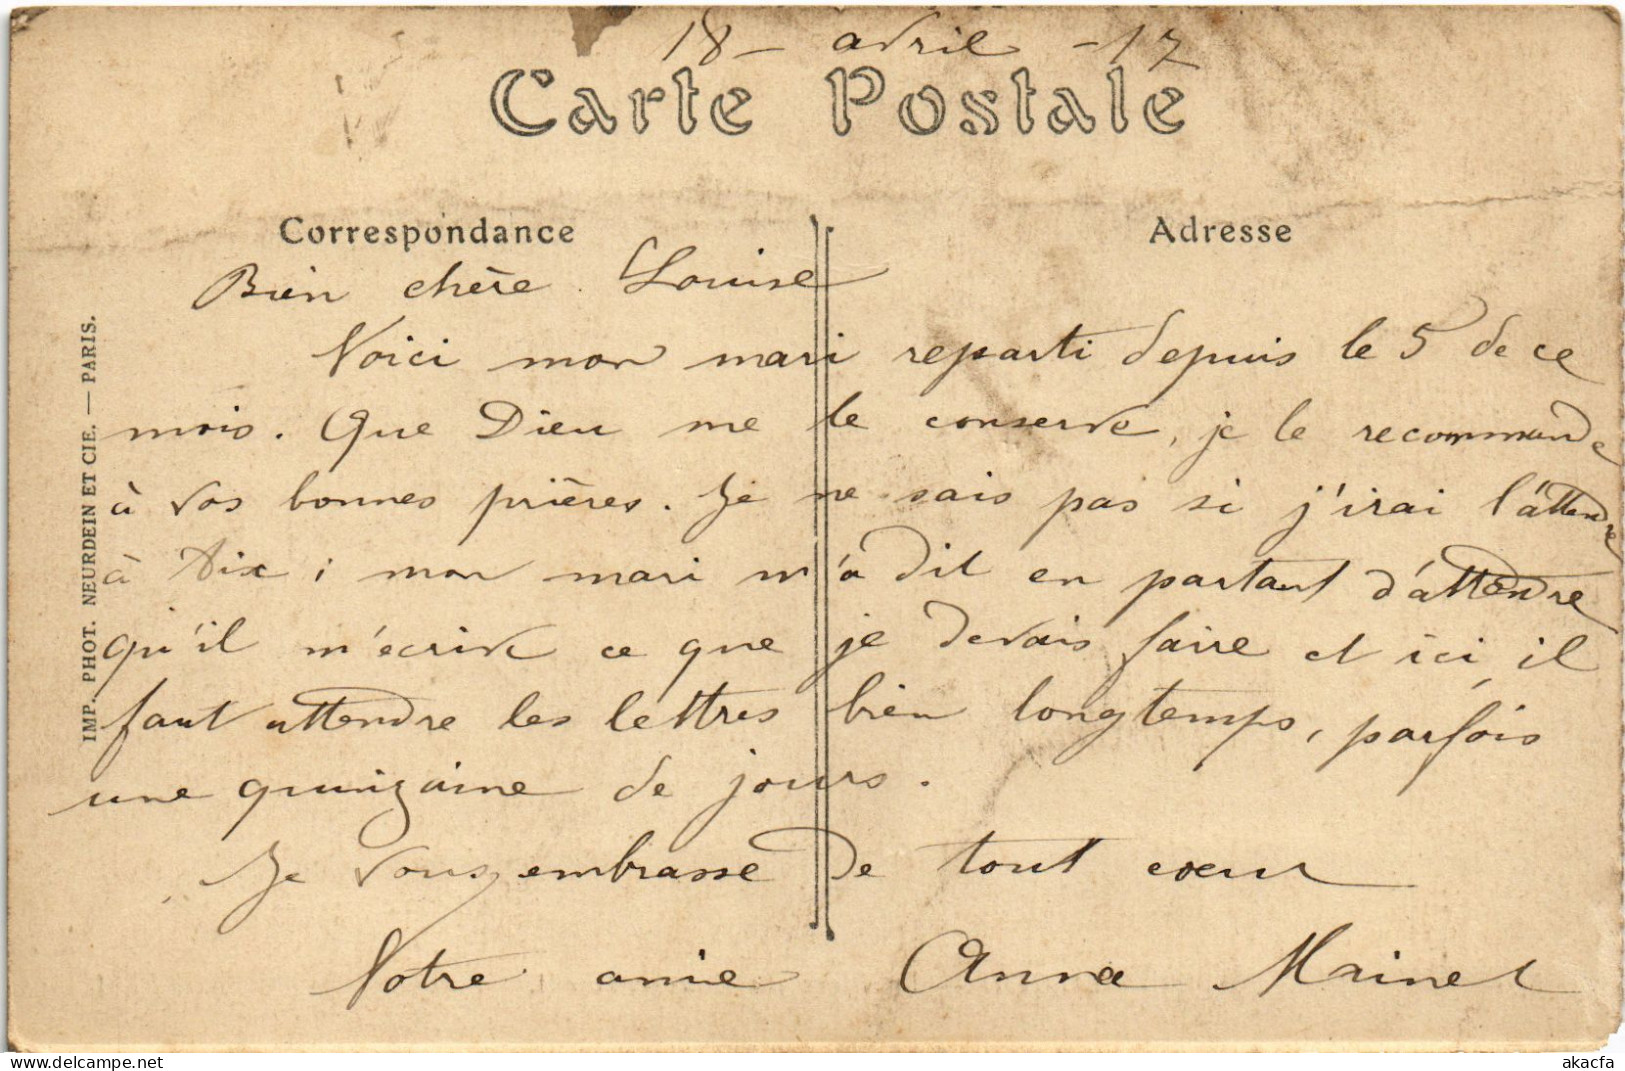 18 - avril - 17
Carte Postale
Correspondance
Adresse
Bien chère Louise
Voici mon mari reparti depuis le 5 de ce
mois. Que Dieu me le conserve, je le recommande
à vos bonnes prières. Je ne sais pas si j'irai l'attendre
à Aix ; mon mari m'a dit en partant d'attendre
qu'il m'écrive ce que je devais faire et ici, il
faut attendre les lettres bien longtemps, parfois
une quinzaine de jours.
Je vous embrasse de tout coeur
Votre amie Anna
IMP. PHOT. NEURDEIN ET CIE. — PARIS.
akacfa on delcampe.net
akacfa